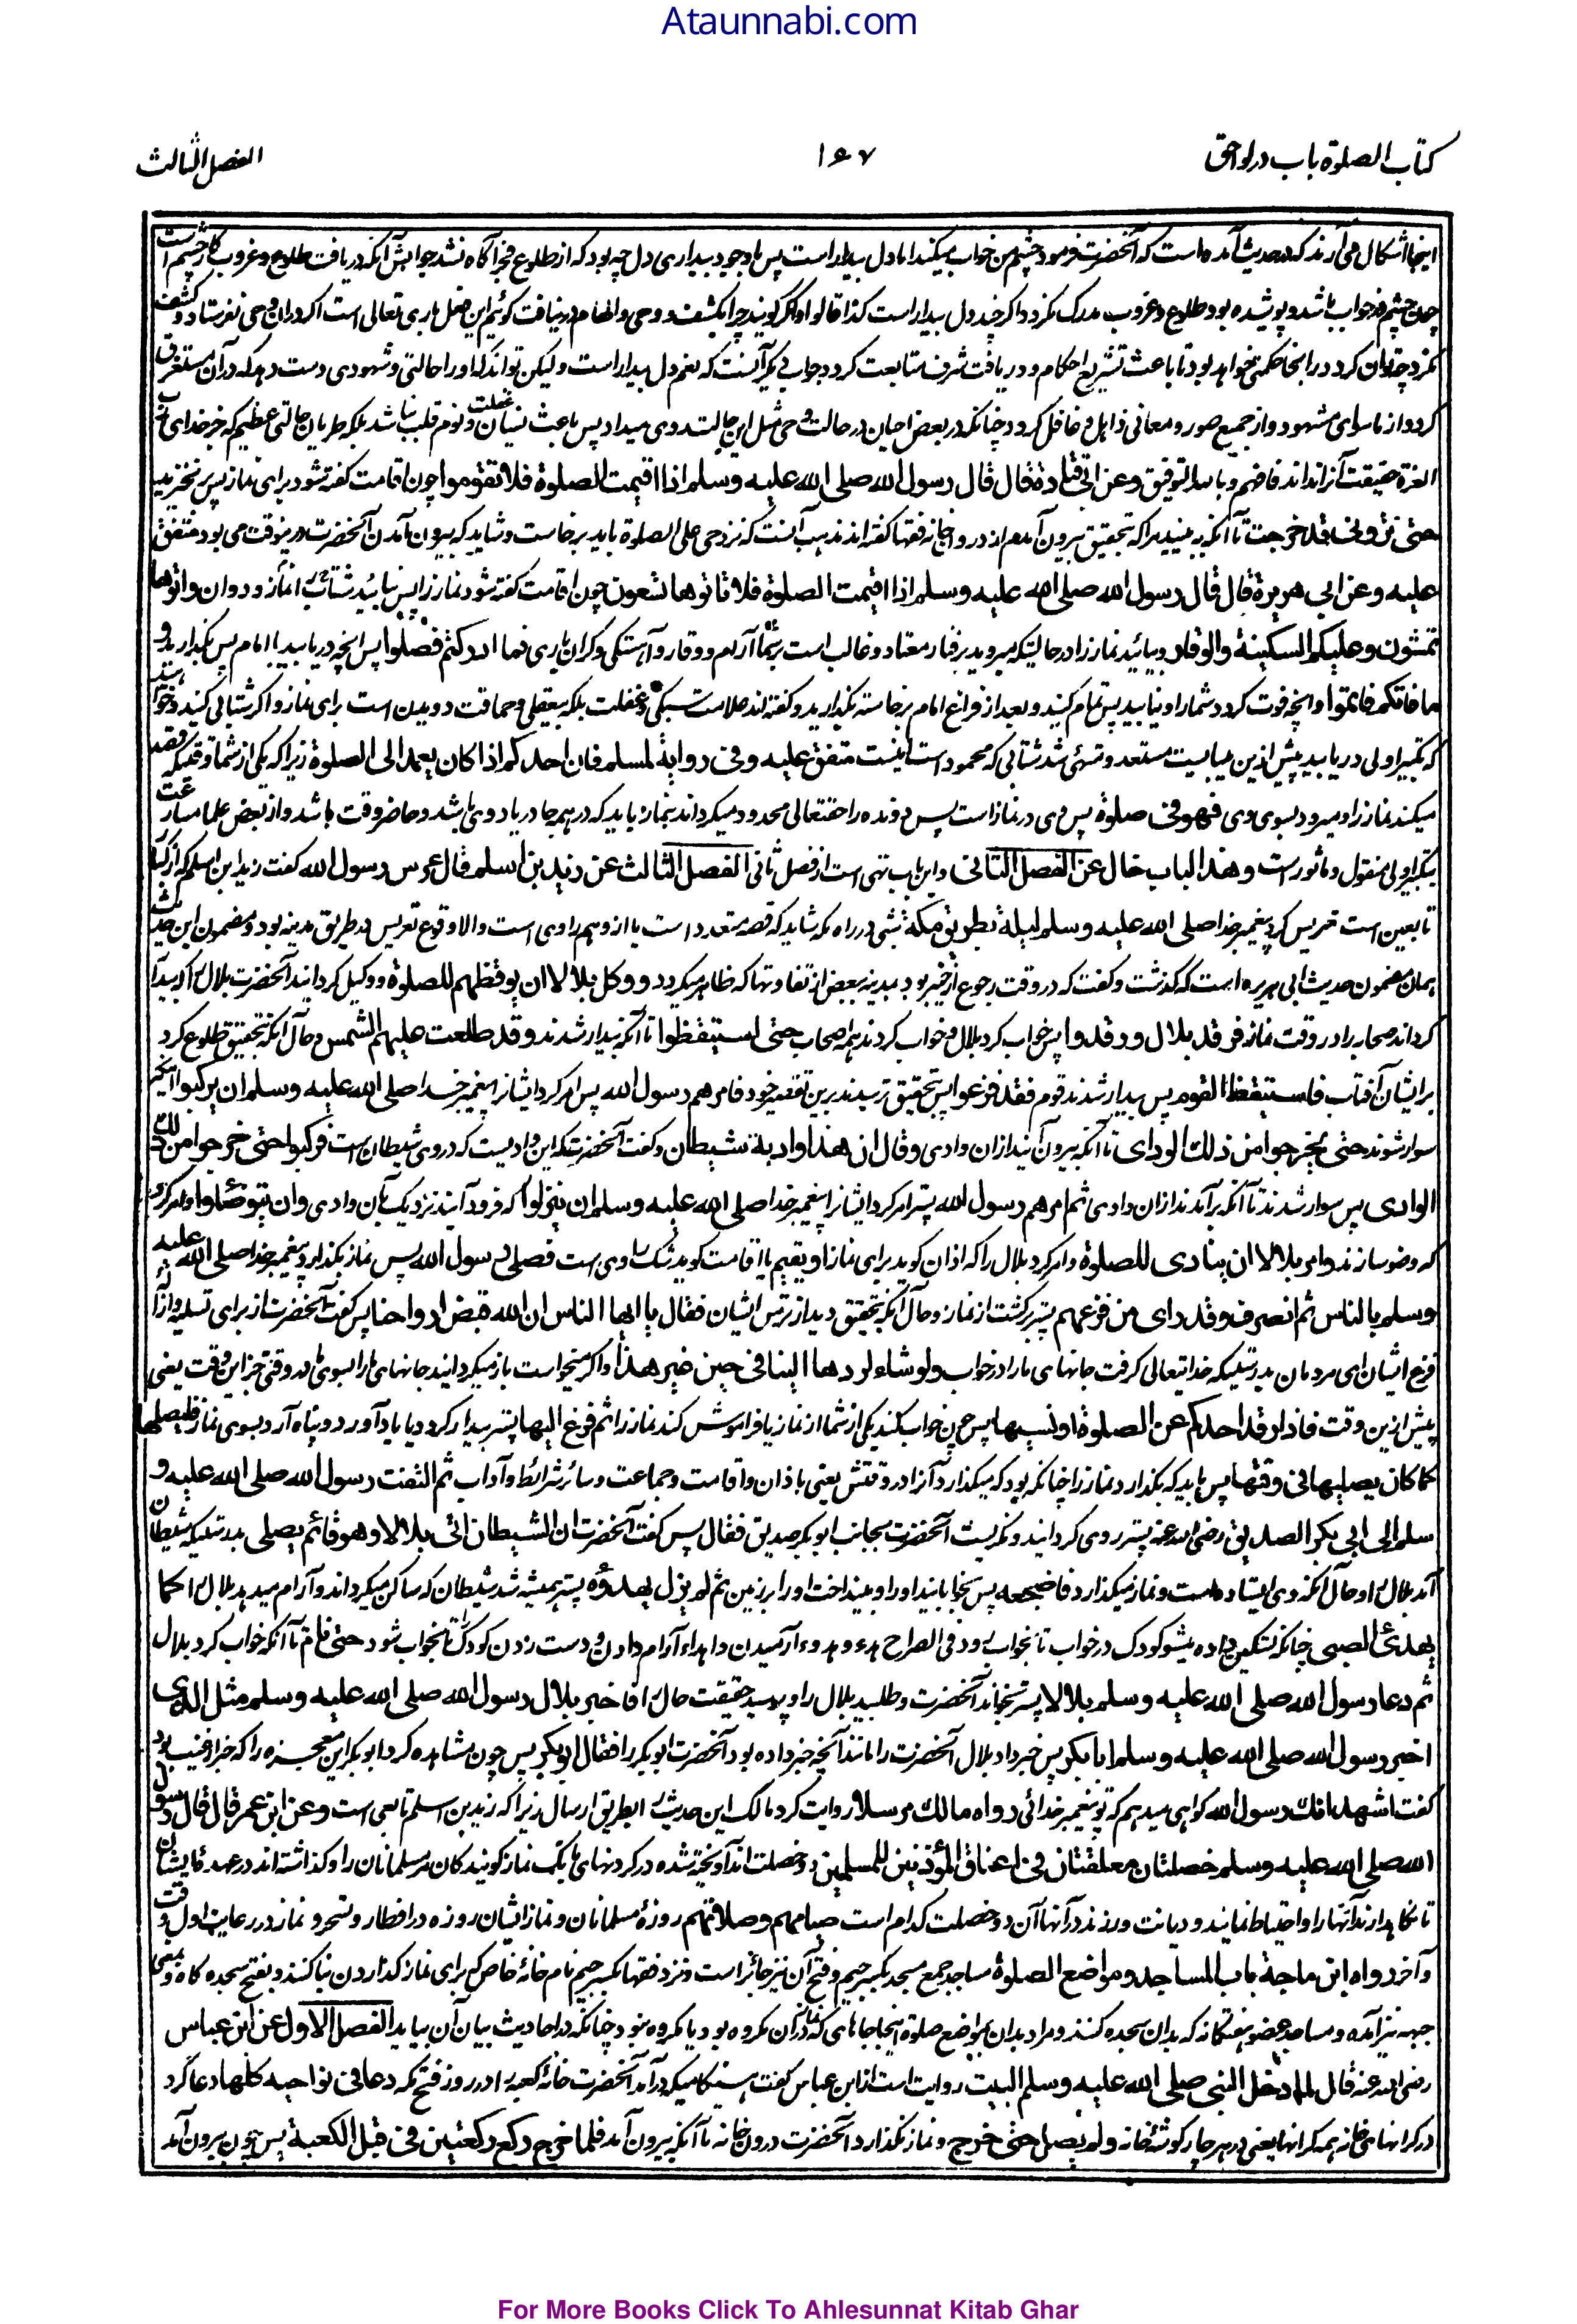 Ataunnabi.com
کتاب الصلوة باب در لواحق
۱۶۷
الفصل الثالث
اینجا اشکال می آرند که در حدیث آمده است که آنحضرت فرمود چشم من خواب میکند اما دل بیدار است پس با وجود بیداری دل چه بود که از طلوع فجر آگاه نشد جوابش آنکه دریافت طلوع و غروب کار چشم است
چون چشم در خواب باشد و پوشیده بود طلوع و غروب مدرک نگردد اگرچه دل بیدار است کذا قالوا و اگر گویند چرا بکشف و وحی و الهام در نیافت گوئیم این فعل باری تعالی است اگر در ان وحی نفرستاد و کشف
نکرد چتوان کرد در اینجا حکمتی خواهد بود تا باعث تشریع احکام و دریافت شرف متابعت گردد و جواب دیگر آنست که نعم دل بیدار است و لیکن تواند که او را حالتی و شهودی دست دهد که در آن مستغرق
گردد از ماسوای مشهود و از جمیع صور و معانی ذاهل و غافل گردد چنانکه در بعض احیان در حالت وحی مثل این حالت روی میداد پس باعث نسیان و نوم غفلت قلب نباشد بلکه طریان حالتی عظیم که جز خدای رب
العزة حقیقت آنرا نداند فافهم و بالله التوفیق وعن ابی قتادة قال قال رسول الله صلی الله علیه وسلم اذا اقیمت الصلوة فلا تقوموا چون اقامت گفته شود برای نماز پس برنخیزید
حتی ترونی قد خرجت تا آنکه به بینید مرا که بتحقیق بیرون آمده ام از درون خانه فقها گفته اند مذهب آنست که نزد حی علی الصلوة باید برخاست و شاید که بیرون آمدن آنحضرت در ینوقت می بود متفق
علیه وعن ابی هریرة قال قال رسول الله صلی الله علیه وسلم اذا اقیمت الصلوة فلا تاتوها تسعون چون اقامت گفته شود نماز را پس نیائید شتاب نماز و دوان واتوها
تمشون وعلیکم السکینة والوقار و بیائید نماز را در حالیکه میروید برفتار معتاد و غالب است بر شما آرام و وقار و آهستگی و گران باری فما ادرکتم فصلوا پس انچه دریابید با امام پس بگذارید و
ما فاتکم فاتموا و انچه فوت گردد شما را و نیابید پس تمام کنید و بعد از فراغ امام برخاسته بگذارید و گفته اند علامت سبکی و غفلت بلکه بیعقلی و حماقت دویدن است برای نماز و اگر شتابی کنید و خواهند
که تکبیر اولی دریابید پیش ازین میبایست مستعد و متهی شد شتابی که محمود است اینست متفق علیه وفی روایة لمسلم فان احدکم اذا کان یعمد الی الصلوة زیرا که یکی از شما وقتیکه قصد
میکند نماز را و میرود بسوی وی فهو فی صلوة پس وی در نماز است پس دونده را حقتعالی محدود میگرداند بنماز باید که در همه جا در یاد وی باشد و حاضر وقت باشد و از بعض علما مسارعت
بتکبیر اولی منقول و ماثور است وهذا الباب خال عن الفصل الثانی و این باب تهی است از فصل ثانی الفصل الثالث عن زید بن اسلم قال عرس رسول الله گفت زید ابن اسلم که از اکابر
تابعین است تعریس کرد پیغمبر خدا صلی الله علیه وسلم لیلة بطریق مکة شبی در راه مکه شاید که قصه متعدد است یا از وهم راوی است والا وقوع تعریس در طریق مدینه بود و مضمون این حدیث
همان مضمون حدیث ابی هریره است که گذشت و گفت که در وقت رجوع از خیبر بود بمدینه ببعض از تفاوتها که ظاهر میگردد ووکل بلالا ان یوقظهم للصلوة و وکیل گردانید آنحضرت بلال را که بیدار
گرداند صحابه را در وقت نماز فرقد بلال ورقدوا پس خواب کرد بلال و خواب کردند همه اصحاب حتی استیقظوا تا آنکه بیدار شدند وقد طلعت علیهم الشمس و حال آنکه بتحقیق طلوع کرد
بر ایشان آفتاب فاستیقظ القوم پس بیدار شدند قوم فقد فزعوا پس بتحقیق ترسیدند برین تقصیر خود فامرهم رسول الله پس امر کرد ایشانرا پیغمبر خدا صلی الله علیه وسلم ان یرکبوا اینکه
سوار شوند حتی یخرجوا من ذلک الوادی تا آنکه بیرون آیند ازان وادی وقال ان هذا واد به شیطان و گفت آنحضرت که این وادیست که در وی شیطان است فرکبوا حتی خرجوا من ذلک
الوادی پس سوار شدند تا آنکه برآمدند ازان وادی ثم امرهم رسول الله پستر امر کرد ایشانرا پیغمبر خدا صلی الله علیه وسلم ان ینزلوا که فرود آیند نزدیک بآن وادی وان یتوضئوا و امر کرد
که وضو سازند وامر بلالا ان ینادی للصلوة و امر کرد بلال را که اذان گوید برای نماز او یقیم یا اقامت گوید شک راوی است فصلی رسول الله پس نماز بگذارد پیغمبر خدا صلی الله علیه
وسلم بالناس ثم انصرف وقد رای من فزعهم پستر برگشت از نماز و حال آنکه بتحقیق دید از ترس ایشان فقال یا ایها الناس ان الله قبض ارواحنا پس گفت آنحضرت از برای تسلیه و ازاله
فزع ایشان ای مردمان بدرستیکه خدایتعالی گرفت جانهای ما را در خواب ولو شاء لردها الینا فی حین غیر هذا و اگر میخواست باز میگردانید جانهای ما را بسوی ما در وقتی جز این وقت یعنی
پیش ازین وقت فاذا رقد احدکم عن الصلوة او نسیها پس چون خواب کند یکی از شما از نماز یا فراموش کند نماز را ثم فزع الیها پستر بیدار گردد یا یاد آورد و پناه آرد بسوی نماز فلیصلها
کما کان یصلیها فی وقتها پس باید که بگذارد نماز را چنانکه بود که میگذارد آنرا در وقتش یعنی باذان و اقامت و جماعت و سائر شرائط و آداب ثم التفت رسول الله صلی الله علیه و
سلم الی ابی بکر الصدیق رضی الله عنه پستر روی گردانید و نگریست آنحضرت بجانب ابو بکر صدیق فقال پس گفت آنحضرت ان الشیطان اتی بلالا وهو قائم یصلی بدرستیکه شیطان
آمد بلال را و حال آنکه وی ایستاده است و نماز میگذارد فاضجعه پس بخوابانید او را و بینداخت او را بر زمین ثم لم یزل یهدئه پستر همیشه شد شیطان که ساکن میگرداند و آرام میدهد بلال را کما
یهدئ الصبی چنانکه تسکین داده میشود کودک در خواب تا بخواب رود فی الصراح هدء و هدوء آرمیدن و اهداء آرام دادن و دست زدن کودک را تا بخواب شود حتی نام تا آنکه خواب کرد بلال
ثم دعا رسول الله صلی الله علیه وسلم بلالا پستر بخواند آنحضرت و طلبید بلال را و پرسید حقیقت حال را فاخبر بلال رسول الله صلی الله علیه وسلم مثل الذی
اخبر رسول الله صلی الله علیه وسلم ابا بکر پس خبر داد بلال آنحضرت را مانند آنچه خبر داده بود آنحضرت ابو بکر را فقال ابو بکر پس چون مشاهده کرد ابو بکر این معجزه را که خبر از غیب بود
گفت اشهد انک رسول الله گواهی میدهم که تو پیغمبر خدائی رواه مالک مرسلا روایت کرد مالک این حدیث را بطریق ارسال زیرا که زید بن اسلم تابعی است وعن ابن عمر قال قال رسول
الله صلی الله علیه وسلم خصلتان معلقتان فی اعناق المؤذنین للمسلمین دو خصلت اند آویخته شده در گردنهای بانگ نماز گویندگان مر مسلمانان را و گذاشته اند در عهده ایشان
تا نگاهدارند آنها را و احتیاط نمایند و دیانت ورزند در آنها آن دو خصلت کدام است صیامهم وصلاتهم روزهٔ مسلمانان و نماز ایشان روزه در افطار و تسحر و نماز در رعایت اول وقت
و آخر رواه ابن ماجة باب المساجد ومواضع الصلوة مساجد جمع مسجد بکسر جیم و فتح آن نیز جائز است و نزد فقها بکسر جیم نام خانهٔ خاص که برای نماز گذاردن بنا کنند و بفتح سجده گاه و بمعنی
جبهه نیز آمده و مساجد عضو هفتگانه که بدان سجده کنند و مراد بدان بمواضع صلوة اینجا جاهای که نماز در آن مکروه بود یا مکروه نبود چنانکه در احادیث بیان آن بیاید الفصل الاول عن ابن عباس
رضی الله عنه قال لما دخل النبی صلی الله علیه وسلم البیت روایت است از ابن عباس گفت هنگامیکه درآمد آنحضرت خانهٔ کعبه را در روز فتح مکه دعا فی نواحیه کلها دعا کرد
در کرانهای خانه همه کرانها یعنی در هر چار گوشهٔ خانه ولم یصل حتی خرج و نماز نگذارد آنحضرت درون خانه تا آنکه بیرون آمد فلما خرج رکع رکعتین فی قبل الکعبة پس چون بیرون آمد
For More Books Click To Ahlesunnat Kitab Ghar